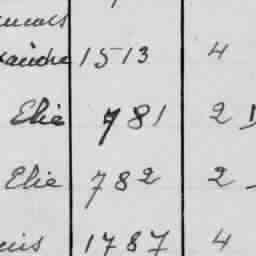 1513 4
Elie 781 2
Elie 782 2
1787 4